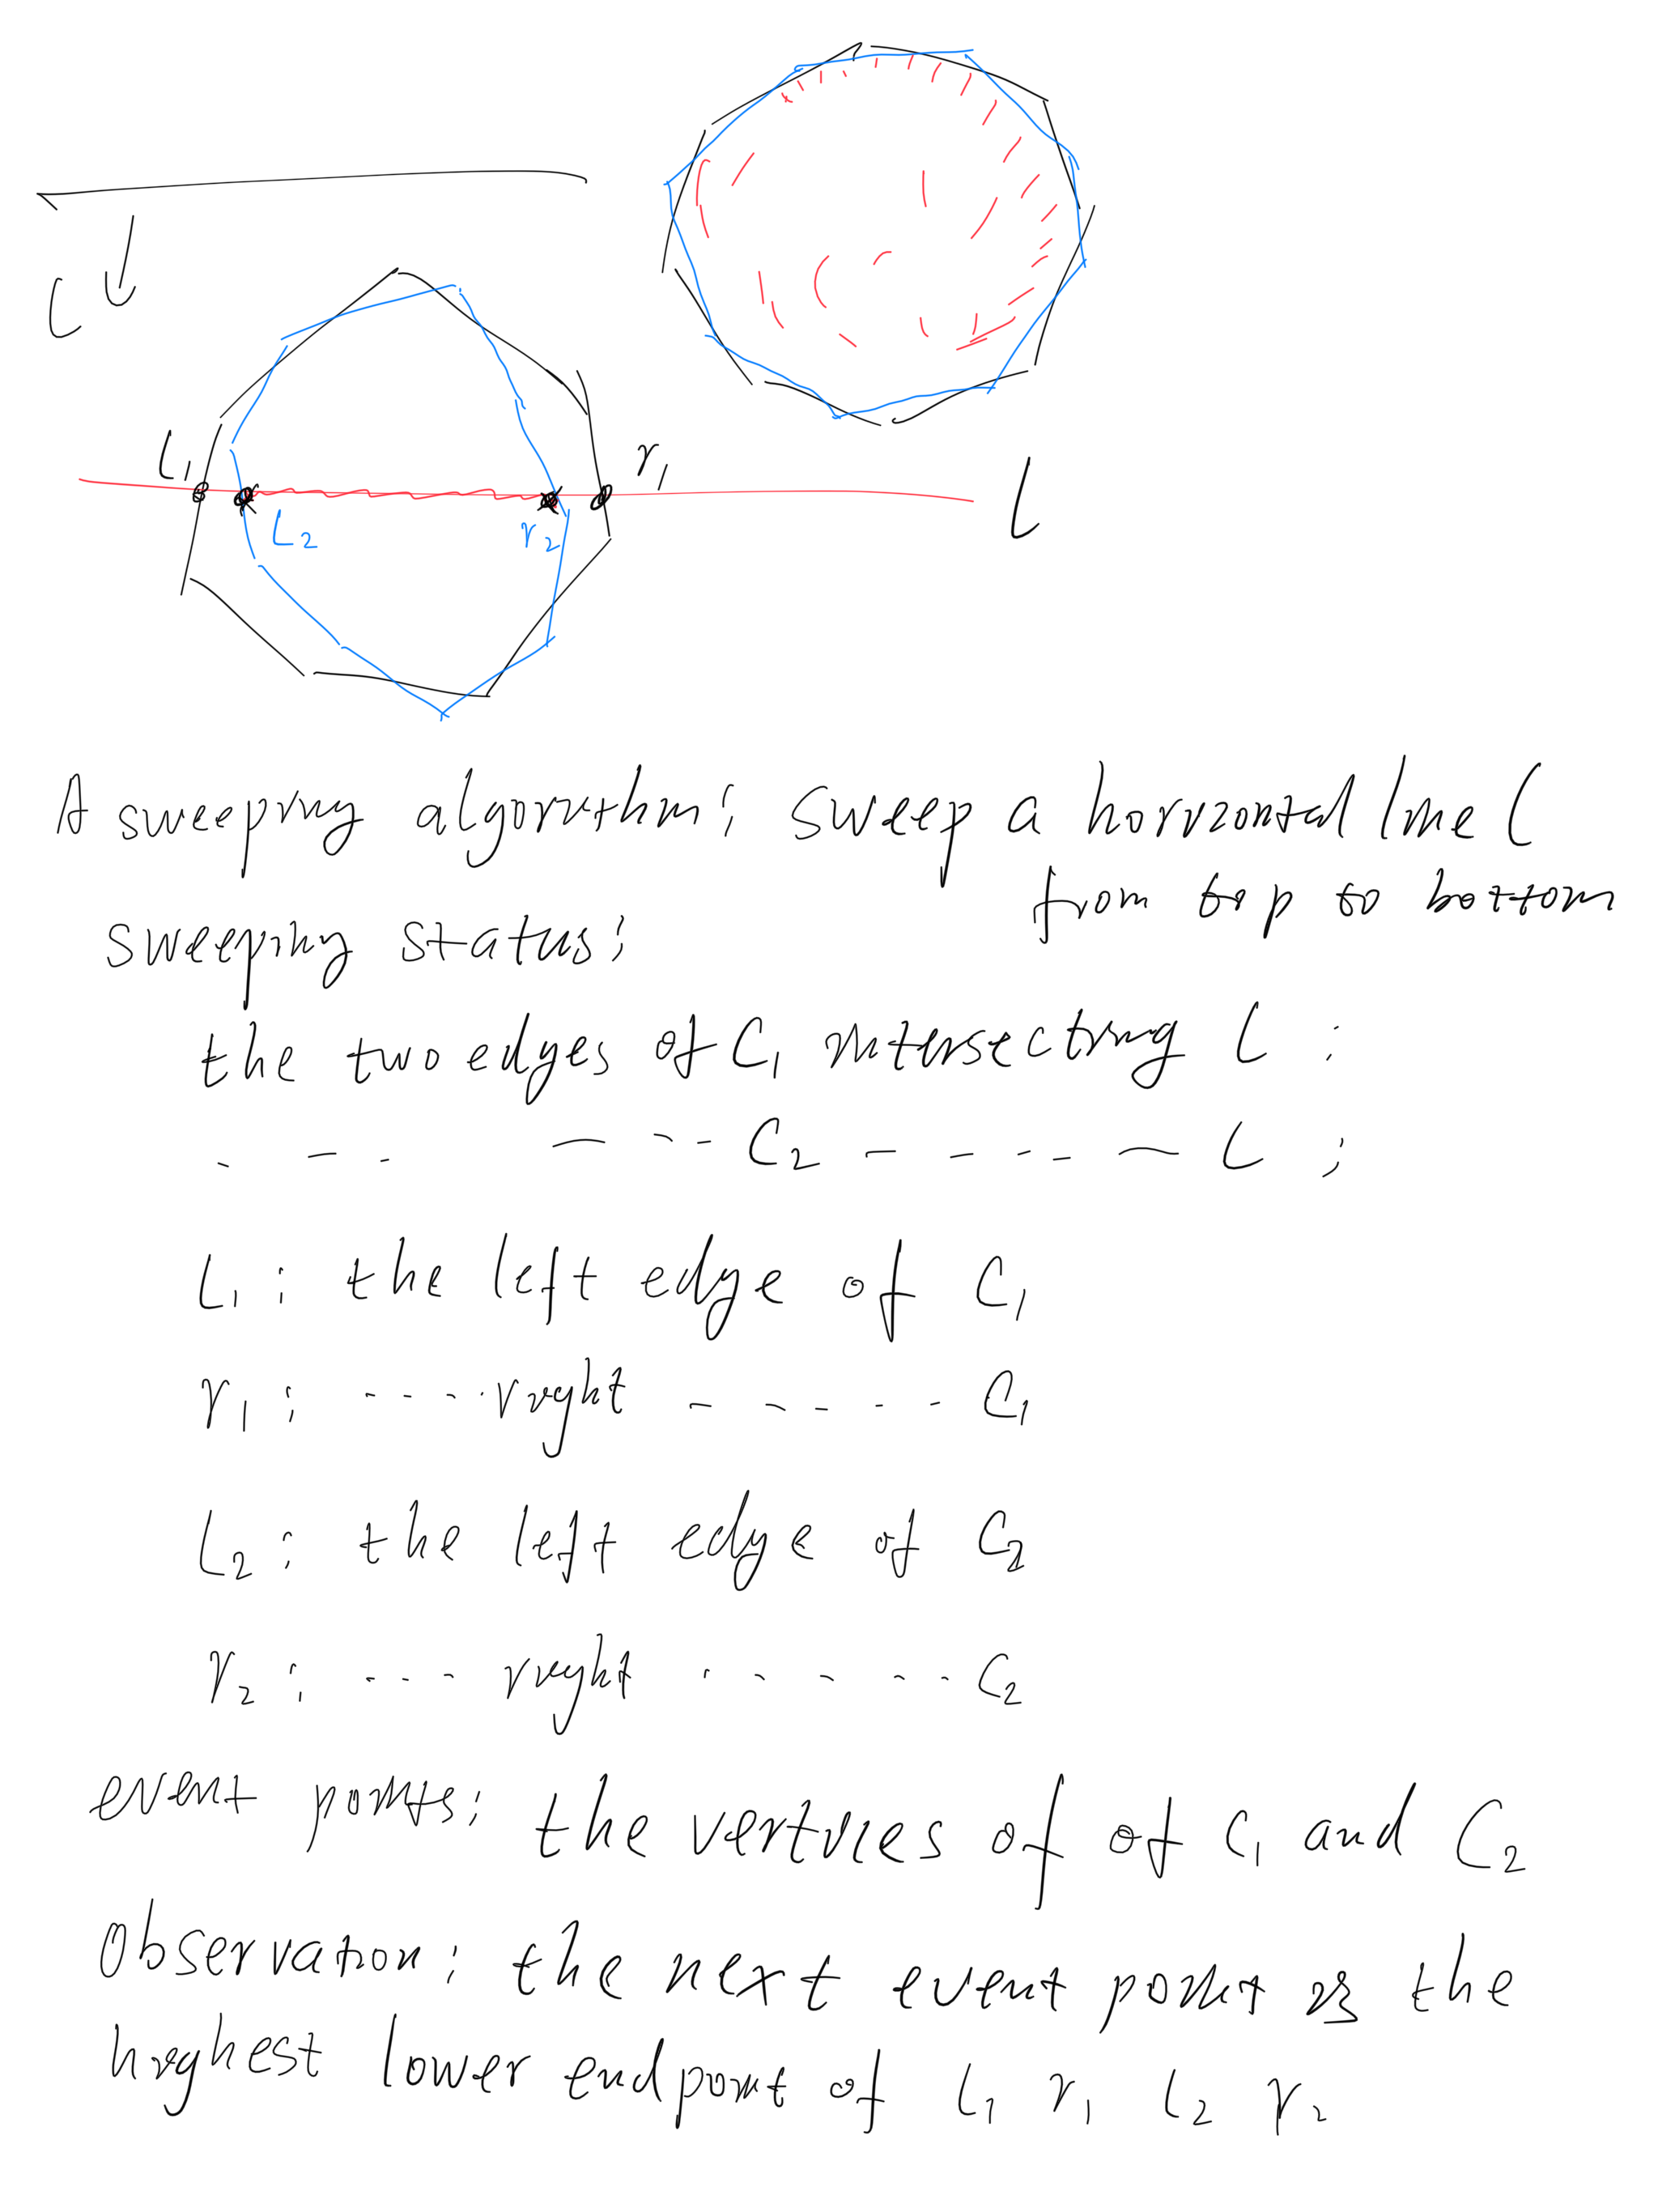 l
l₁
r₁
l
l₂
r₂
A sweeping algorithm: sweep a horizontal line l
from top to bottom
sweeping status:
the two edges of C₁ intersecting l :
. - - - - - - - C₂ - - - - - - l ;
l₁ : the left edge of C₁
r₁ : - - - - right - - - - - - C₁
l₂ : the left edge of C₂
r₂ : - - - right - - - - - - C₂
event points: the vertices of of C₁ and C₂
Observation: the next event point is the
highest lower endpoint of l₁ r₁ l₂ r₂